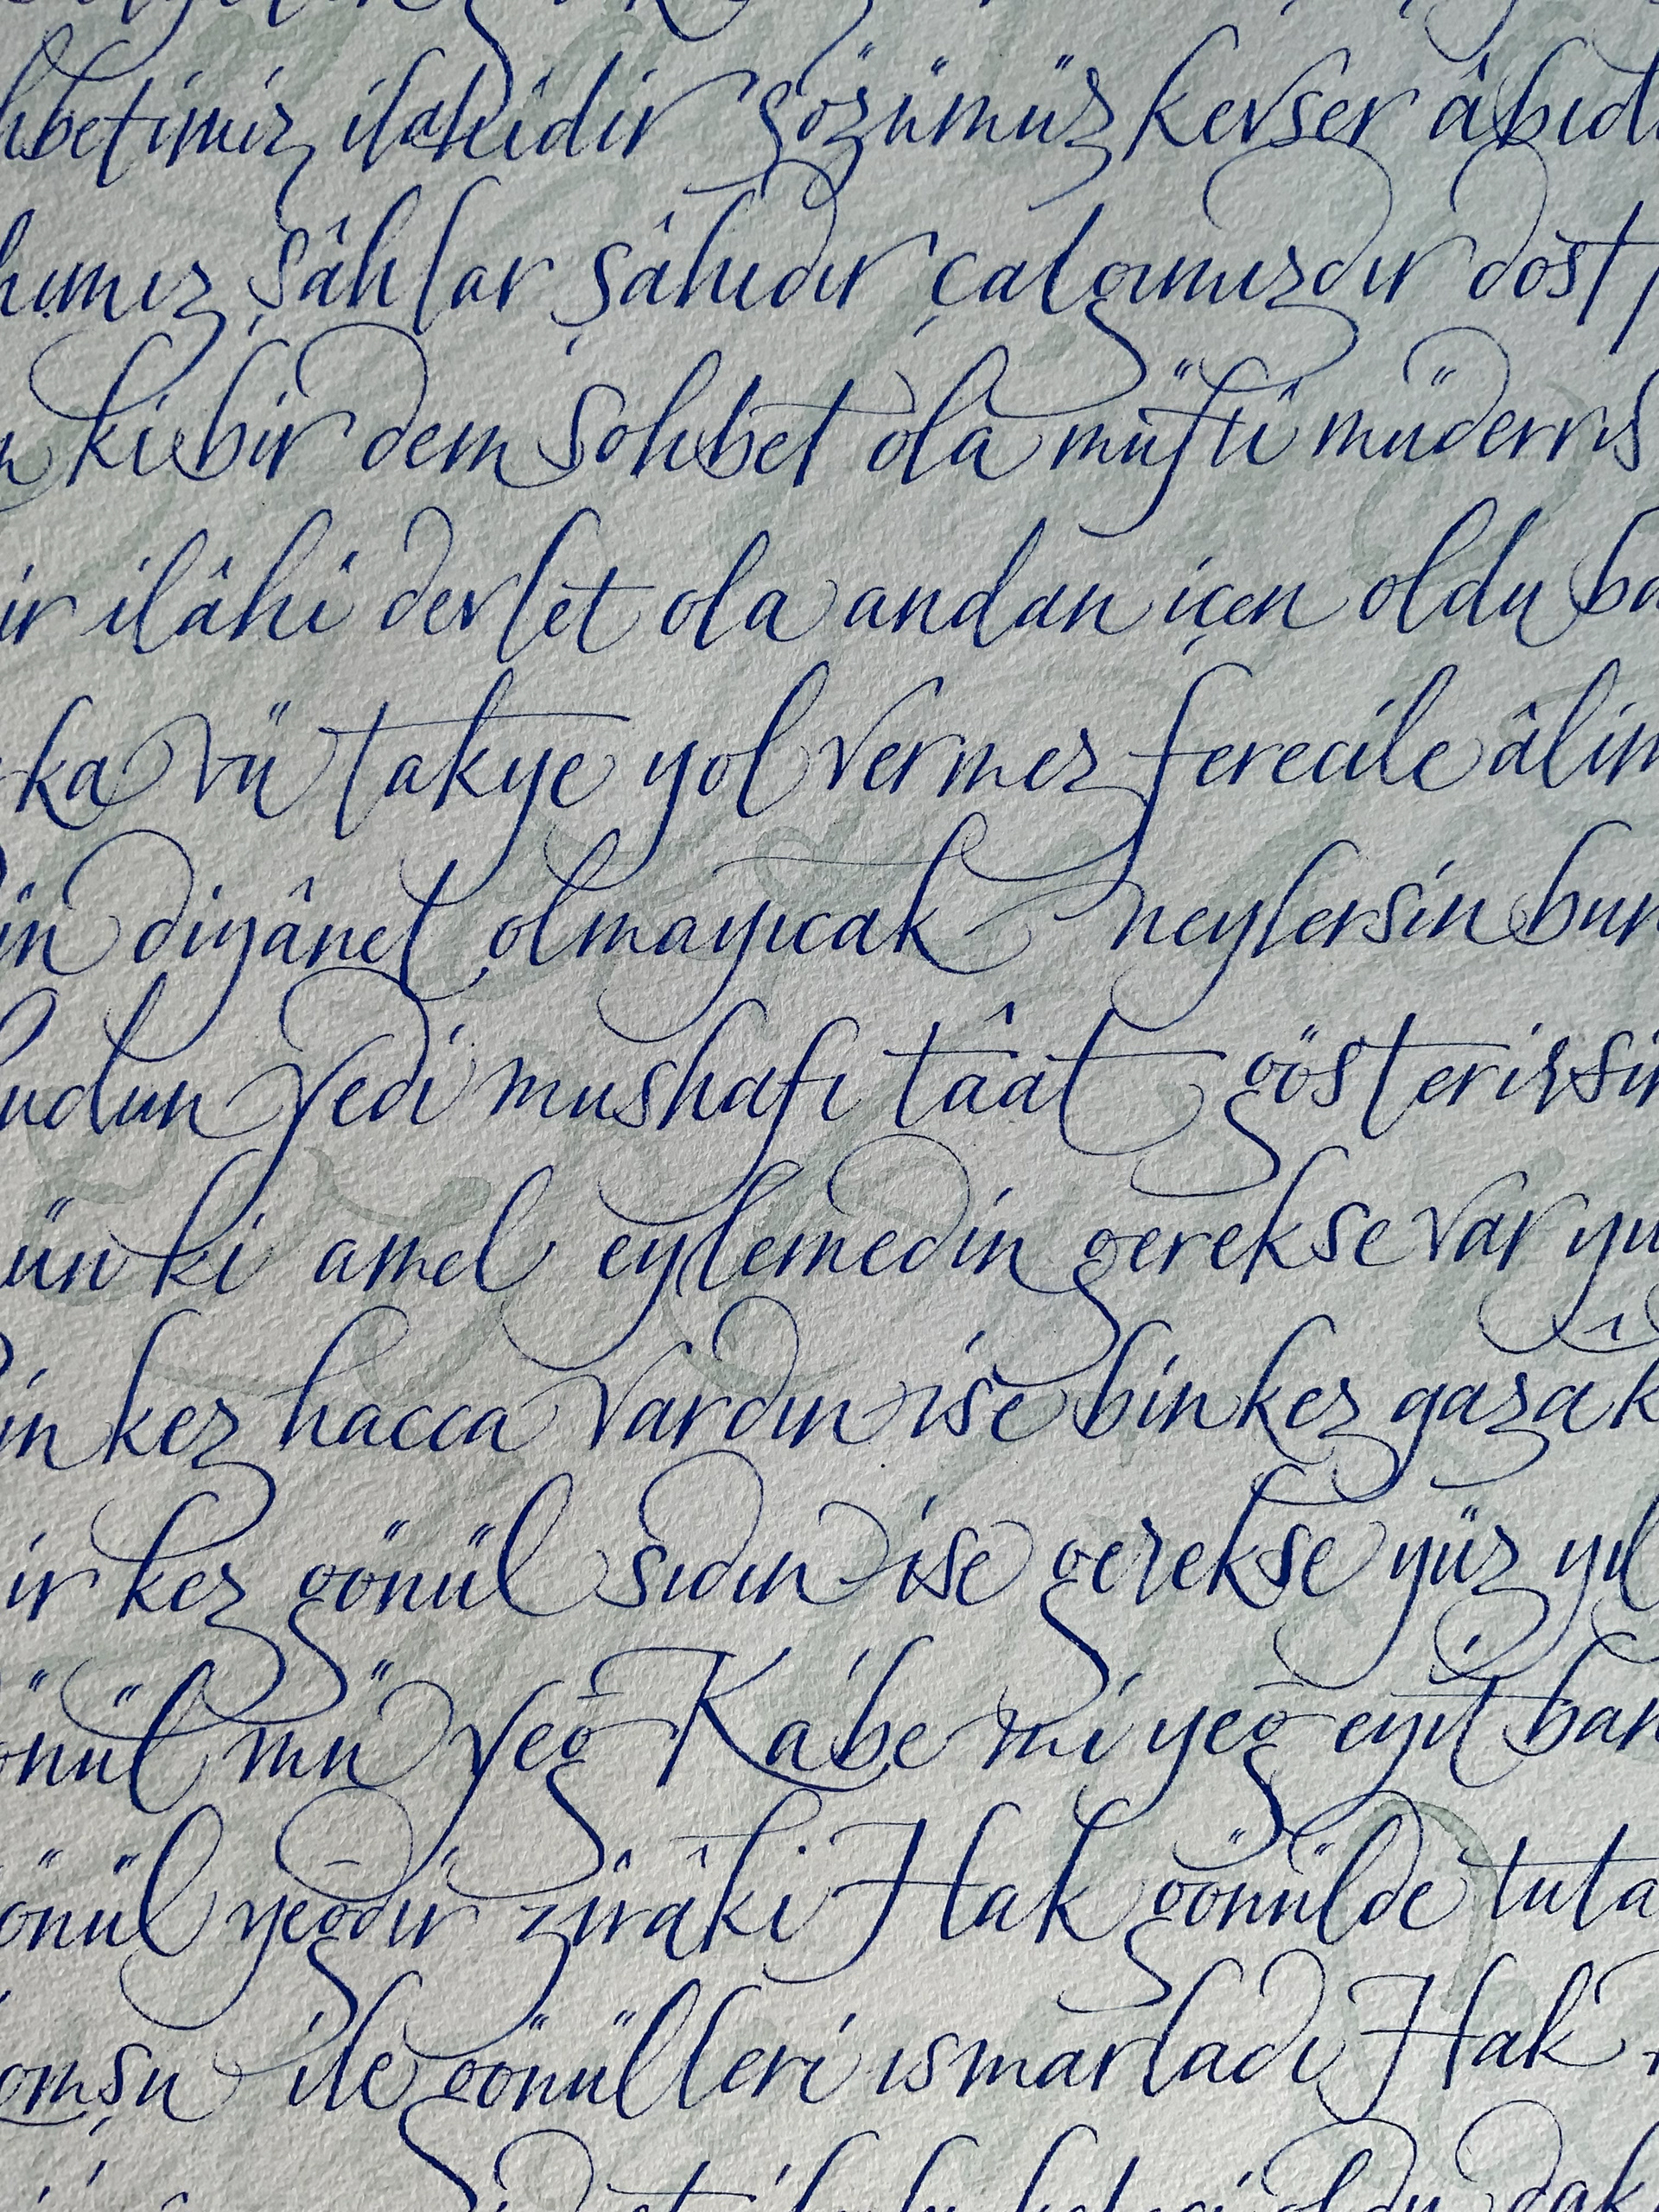 hbetimiz ilahidir sözümüz kevser âbıd
hımız şâhlar şâhıdır çalgımızdır dost
ki bir dem sohbet ola müftî müderris
ir ilâhî devlet ola andan içen oldu ba
ka vü takye yol vermez ferecile âlim
in diyânet olmayıcak neylersin bun
udun yedi mushafı tâat gösterirsin
ün ki amel eylemedin gerekse var yu
in kez hacca vardın ise bin kez gaza k
ir kez gönül sıdın ise gerekse yüz yıl
önül mü yeğ Ka'be mi yeğ eyit ban
önül yeğdir zîrâ ki Hak gönülde tuta
omşu ile gönülleri ısmarladı Hak